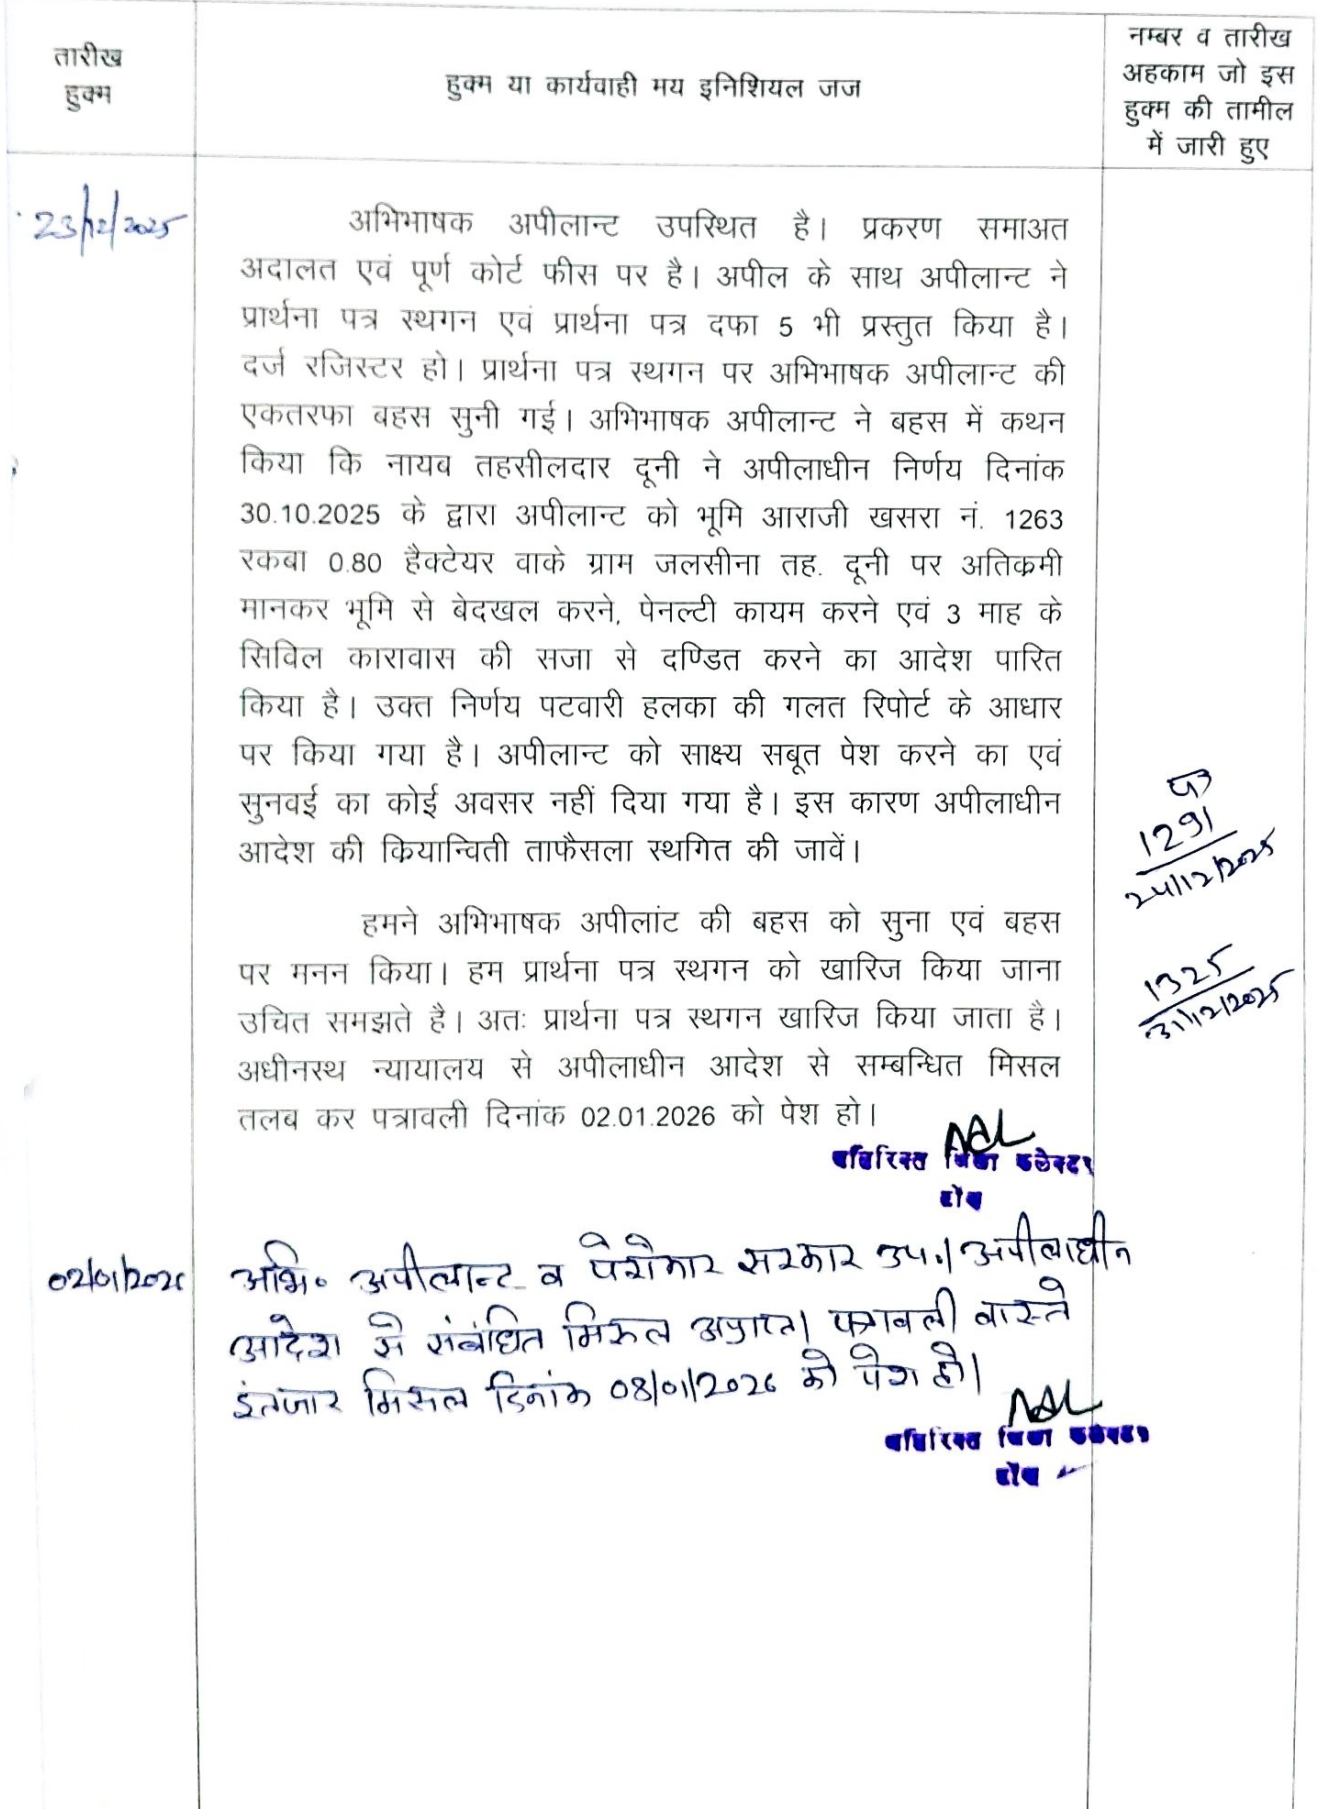 तारीख
हुक्म
हुक्म या कार्यवाही मय इनिशियल जज
नम्बर व तारीख
अहकाम जो इस
हुक्म की तामील
में जारी हुए
23/12/2025
अभिभाषक अपीलान्ट उपस्थित है। प्रकरण समाअत
अदालत एवं पूर्ण कोर्ट फीस पर है। अपील के साथ अपीलान्ट ने
प्रार्थना पत्र स्थगन एवं प्रार्थना पत्र दफा 5 भी प्रस्तुत किया है।
दर्ज रजिस्टर हो। प्रार्थना पत्र स्थगन पर अभिभाषक अपीलान्ट की
एकतरफा बहस सुनी गई। अभिभाषक अपीलान्ट ने बहस में कथन
किया कि नायब तहसीलदार दूनी ने अपीलाधीन निर्णय दिनांक
30.10.2025 के द्वारा अपीलान्ट को भूमि आराजी खसरा नं. 1263
रकबा 0.80 हैक्टेयर वाके ग्राम जलसीना तह. दूनी पर अतिक्रमी
मानकर भूमि से बेदखल करने, पेनल्टी कायम करने एवं 3 माह के
सिविल कारावास की सजा से दण्डित करने का आदेश पारित
किया है। उक्त निर्णय पटवारी हलका की गलत रिपोर्ट के आधार
पर किया गया है। अपीलान्ट को साक्ष्य सबूत पेश करने का एवं
सुनवई का कोई अवसर नहीं दिया गया है। इस कारण अपीलाधीन
आदेश की कियान्विती ताफैसला स्थगित की जावें।
1291
24/12/2025
हमने अभिभाषक अपीलांट की बहस को सुना एवं बहस
पर मनन किया। हम प्रार्थना पत्र स्थगन को खारिज किया जाना
उचित समझते है। अतः प्रार्थना पत्र स्थगन खारिज किया जाता है।
अधीनस्थ न्यायालय से अपीलाधीन आदेश से सम्बन्धित मिसल
तलब कर पत्रावली दिनांक 02.01.2026 को पेश हो।
1325
31/12/2025
अतिरिक्त जिला कलेक्टर
टोंक
02/01/2026
अभि० अपीलान्ट व पेरोकार सरकार उप.। अपीलाधीन
आदेश से संबंधित मिसल अप्राप्त। पत्रावली वास्ते
इंतजार मिसल दिनांक 08/01/2026 को पेश हो।
अतिरिक्त जिला कलेक्टर
टोंक